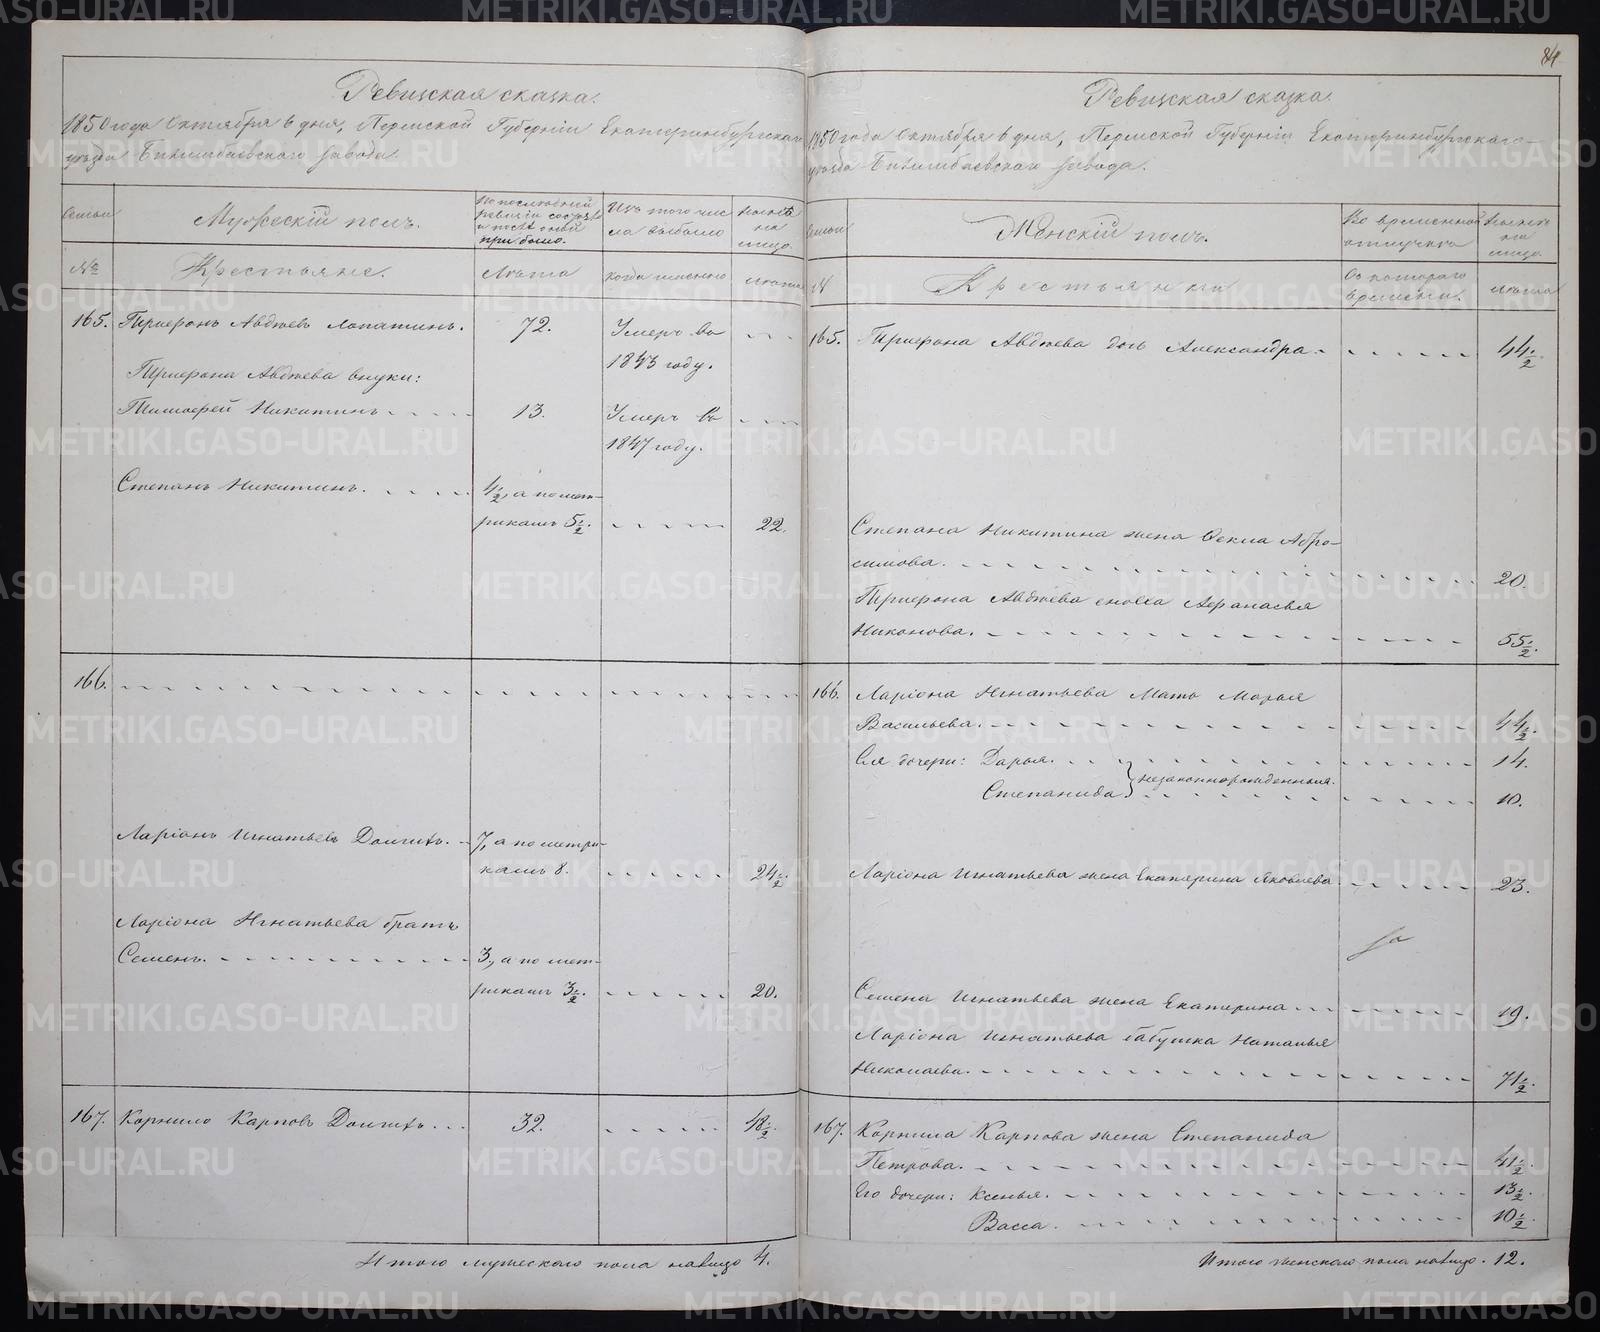 84
Ревизская сказка.
1850 года Октября 6 дня, Пермской Губерніи Екатеринбургскаго
уѣзда Билимбаевскаго завода.
Семьи
Мужескій полъ.
По послѣдней
ревизіи состояло
и послѣ оной
прибыло.
Изъ того чис
ла выбыло
Нынѣ
на
лицо.
№
Крестьяне.
Лѣта
когда именно
Лѣта
165. Трифонъ Авдѣевъ Лопатинъ. 72. Умеръ въ
1843 году.
Трифона Авдѣева внуки:
Тимофей Никитинъ 13. Умеръ въ
1847 году.
Степанъ Никитинъ. 4½, а по мет-
рикамъ 5½. 22.
166.
Ларіонъ Игнатьевъ Долгихъ. 7, а по метри-
камъ 8. 24½.
Ларіона Игнатьева братъ
Семенъ. 3, а по мет-
рикамъ 3½. 20.
167. Корнило Карповъ Долгихъ. 32. 48½.
Итого мужескаго пола налицо 4.
Ревизская сказка.
1850 года Октября 6 дня, Пермской Губерніи Екатеринбургскаго
уѣзда Билимбаевскаго завода.
Семьи
Женскій полъ.
Во временной
отлучкѣ
Нынѣ
на
лицо
№
Крестьянки
Съ котораго
времени.
Лѣта
165. Трифона Авдѣева дочь Александра. 44½.
Степана Никитина жена Фекла Абро-
симова. 20.
Трифона Авдѣева сноха Афанасья
Никонова. 55½.
166. Ларіона Игнатьева Мать Марья
Васильева. 44½.
Ея дочери: Дарья. 14.
незаконнорожденныя.
Степанида 10.
Ларіона Игнатьева жена Екатерина Яковлева 23.
Семена Игнатьева жена Екатерина 19.
Ларіона Игнатьева бабушка Наталья
Николаева. 71½.
167. Корнила Карпова жена Степанида
Петрова. 41½.
Его дочери: Ксенья. 13½.
Васса. 10½
Итого женскаго пола налицо. 12.
METRIKI.GASO-URAL.RU